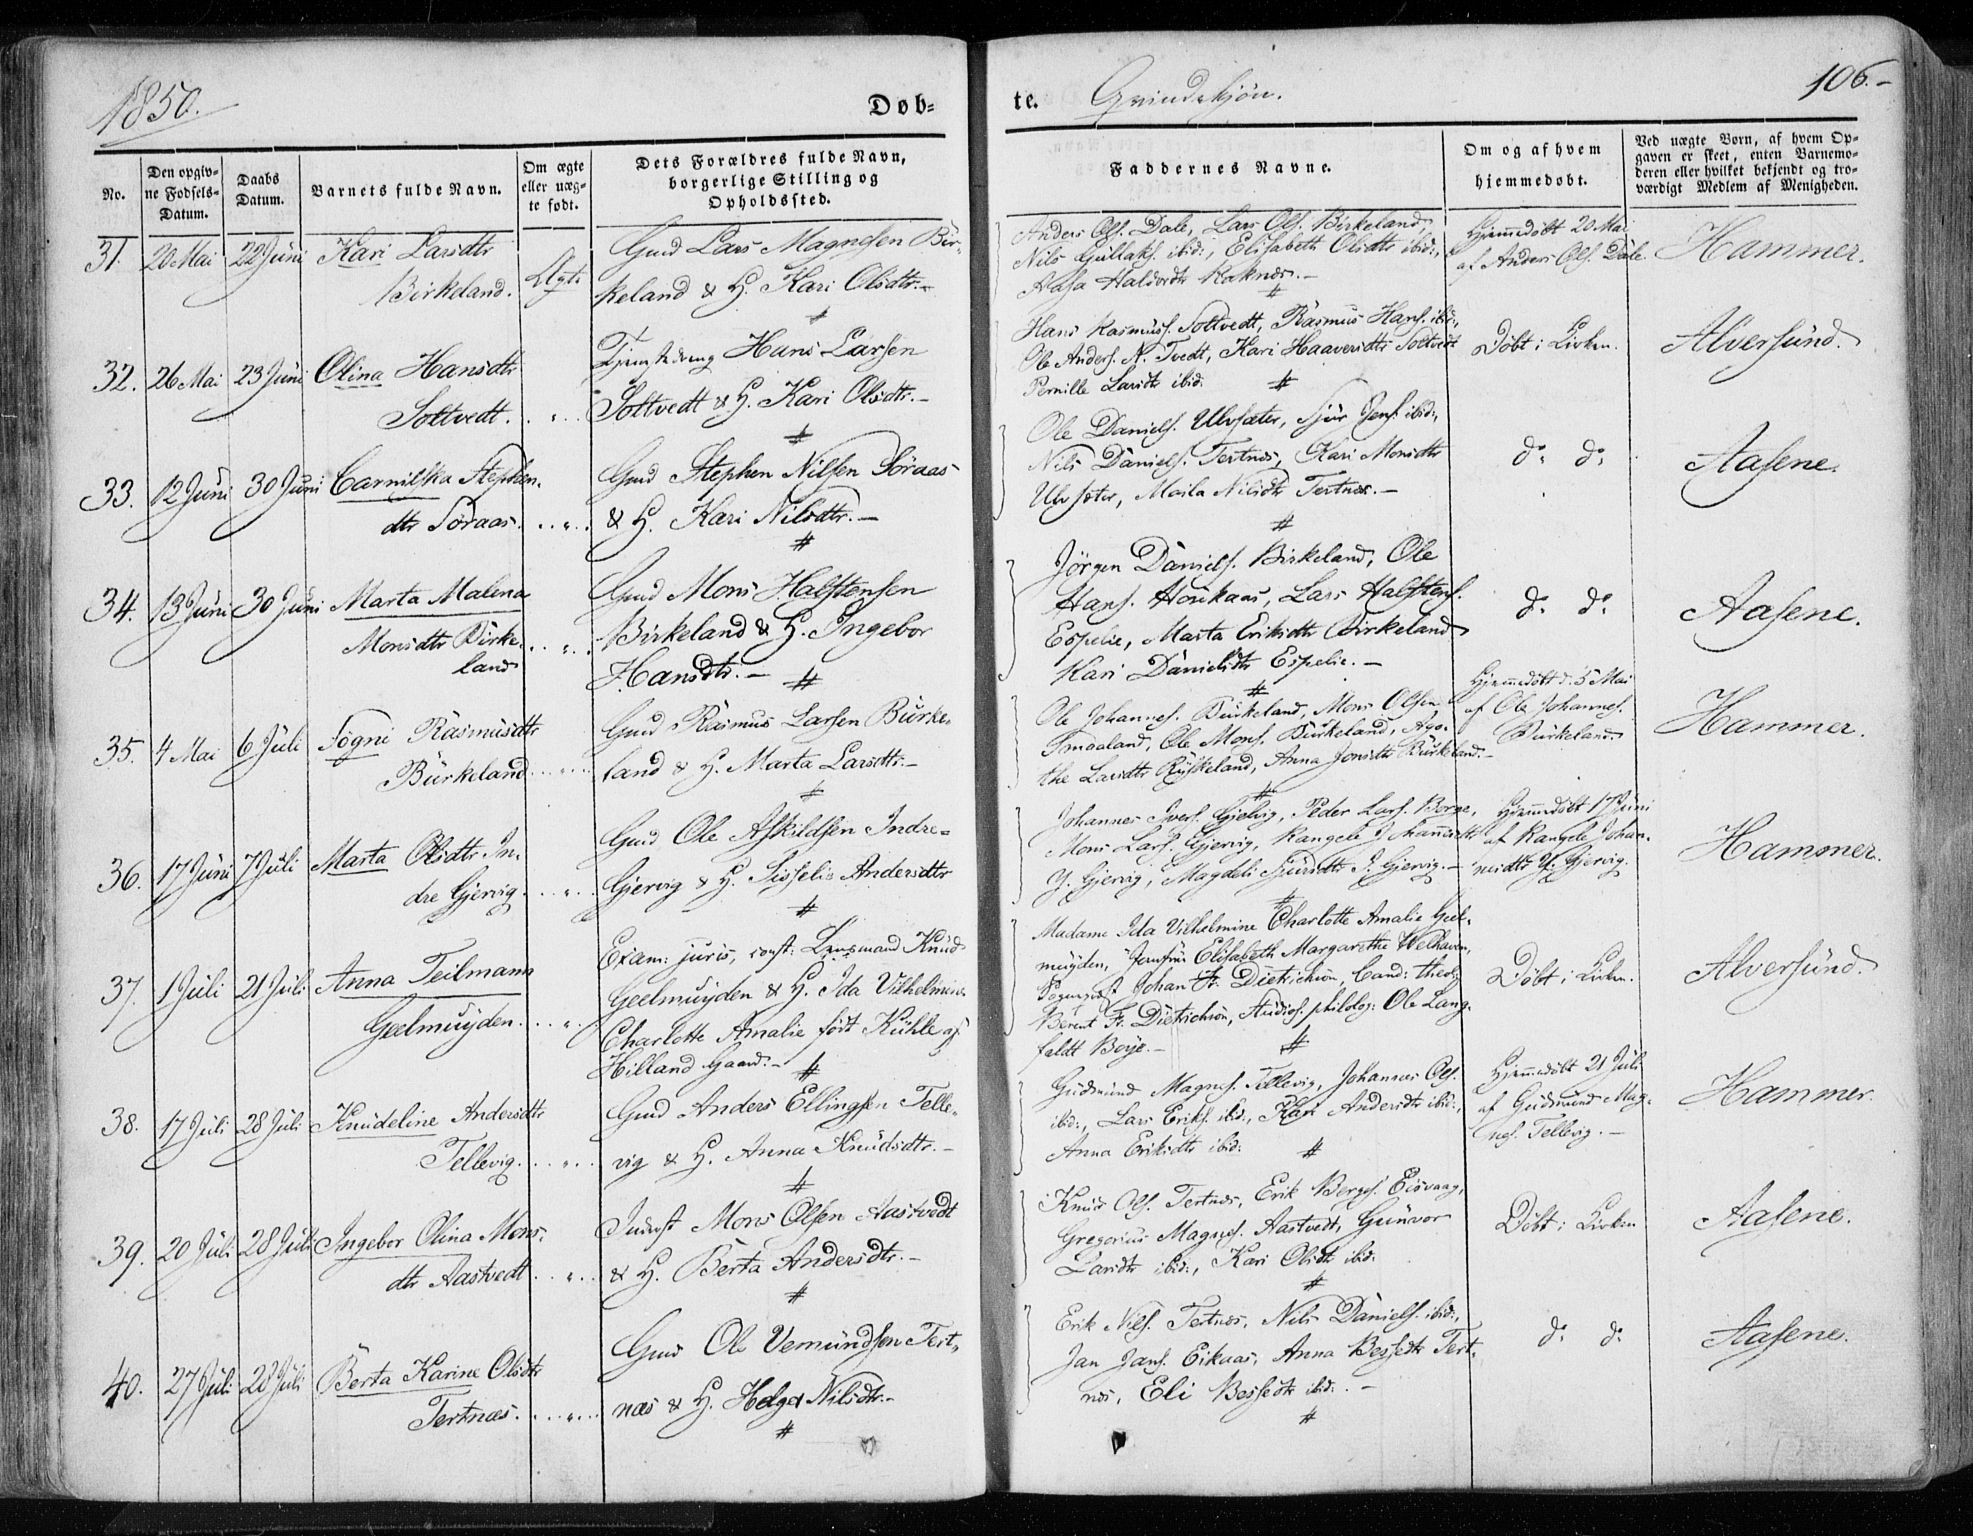 1850.
Døb=
te.
Qvindekjön.
106.-
No.
Den opgiv-
ne Fødsels-
Datum.
Daabs
Datum.
Barnets fulde Navn.
Om ægte
eller uæg-
te født.
Dets Forældres fulde Navn,
borgerlige Stilling og
Opholdssted.
Faddernes Navne.
Om og af hvem
hjemmedøbt.
Ved uægte Børn, af hvem Op-
gaven er skeet, enten Barnemo-
deren eller hvilket bekjendt og tro-
værdigt Medlem af Menigheden.
31. 20 Mai 22 Juni Kari Larsdtr
Birkeland. Ægte
Gmd Lars Magnesen Bir-
keland & H. Kari Olsdtr.-
Anders Ols. Dale, Lars Ols. Birkeland,
Nils Gullaks. ibid:, Elisabeth Olsdtr ibid:,
Aasa Haldordtr Roknes.-
Hjemmedöbt 20 Mai
af Anders Ols. Dale.
Hammer.
32. 26 Mai 23 Juni Olina Hansdtr
Soltvedt.
Tjenstdreng Hans Larsen
Soltvedt & H. Kari Olsdtr.-
Hans Rasmuss. Soltvedt, Rasmus Hans. ibid:,
Ole Anders. N. Tvedt, Kari Haaversdtr Soltvedt
Pernille Larsdtr ibid:
Döbt i Kirken.
Alversund.
33. 12 Juni 30 Juni Carnilska Stephen-
dtr Søraas.
Gmd Stephen Nilsen Søraas
& H. Kari Nilsdtr.-
Ole Daniels. Ulvsæter, Sjur Jens. ibid:,
Nils Daniels. Tertnes, Kari Monsdtr
Ulvsæter, Maila Nilsdtr Tertnes.-
do do
Aasene.
34. 13 Juni 30 Juni Marta Malena
Monsdtr Birke-
land
Gmd Mons Halstensen
Birkeland & H. Ingebor
Hansdtr.-
Jörgen Daniels. Birkeland, Ole
Hans. Houkaas, Lars Halstens.
Espelie, Marta Eriksdtr Birkeland
Kari Danielsdtr Espelie.-
do do
Aasene.
35. 4 Mai 6 Juli Søgni Rasmusdtr
Burkeland
Gmd Rasmus Larsen Burke-
land & H. Marta Larsdtr.-
Ole Johannes. Burkeland, Mons Olsen
Smaaland, Ole Mons. Burkeland, Aga-
the Larsdtr Ryskeland, Anna Jonsdtr Burkeland.-
Hjemmedöbt d. 5 Mai
af Ole Johannes.
Burkeland.
Hammer.
36. 17 Juni 7 Juli Marta Olsdtr In-
dre Gjervig.
Gmd Ole Askildsen Indre-
Gjervig & H. Sisselie Andersdtr
Johannes Ivers. Gjelvig, Peder Lars. Borge,
Mons Lars. Gjervig, Rangele Johannesdtr
Y. Gjervig, Magdeli Sjursdtr I. Gjervig.-
Hjemmedöbt 17 Juni
af Rangele Johan-
nesdtr Y. Gjervig.
Hammer.
37. 1 Juli 21 Juli Anna Teilmann
Geelmuyden.
Exam: juris, const: Lensmand Knud
Geelmuyden & H. Ida Vilhelmine
Charlotte Amalie født Kühle af
Hilland Gaard.-
Madame Ida Vilhelmine Charlotte Amalie Geel-
muyden, Jomfru Elisabeth Margarethe Welhaven,
Sognepræst Johan Fr. Dietrichson, Cand: theol:
Berent Fr. Dietrichson, Studios. philolog: Ole Lang-
feldt Boye.-
Döbt i Kirken.
Alversund.
38. 17 Juli 28 Juli Knudeline Andersdtr
Tellevig.
Gmd Anders Ellingsen Telle-
vig & H. Anna Knudsdtr.-
Gudmund Magnes. Tellevig, Johannes Ols.
ibid:, Lars Eriks. ibid:, Kari Andersdtr ibid:,
Anna Eriksdtr ibid:
Hjemmedöbt 21 Juli
af Gudmund Mag-
nes. Tellevig.-
Hammer.
39. 20 Juli 28 Juli Ingebor Olina Mons-
dtr Aastvedt
Inderst Mons Olsen Aastvedt
& H. Berta Andersdtr.-
Knud Ols. Tertnes, Erik Berges. Eidsvaag,
Gregorius Magnes. Aastvedt, Gunvor
Larsdtr ibid:, Kari Olsdtr ibid:
Döbt i Kirken
Aasene.
40. 27 Juli 28 Juli Berta Karine Olsdtr
Tertnæs.
Gmd Ole Vemundsen Tert-
næs & H. Helga Nilsdtr.-
Erik Nils. Tertnes, Nils Daniels. ibid:,
Jan Jans. Eikaas, Anna Bessedtr Tert-
nes, Eli Bessedtr ibid:.-
do do
Aasene.